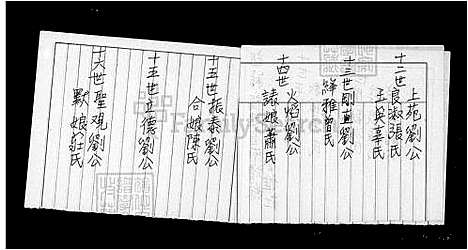 上苑劉公
十二世良淑張氏
玉英辜氏
十三世剛直劉公
絆雅曾氏
十四世火焰劉公
諒娘蕭氏
十五世振泰劉公
合娘陳氏
十五世立德劉公
十六世聖观劉公
默娘莊氏
FamilySearch